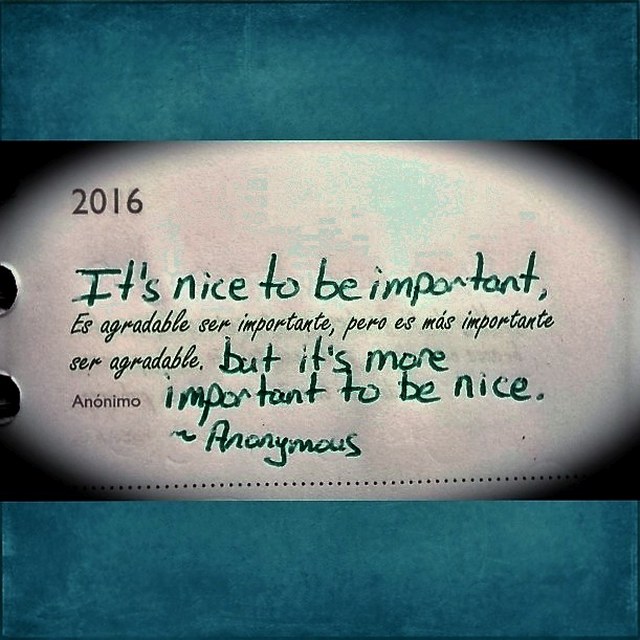 2016
It's nice to be important,
Es agradable ser importante, pero es más importante
ser agradable. but it's more
Anónimo important to be nice.
~ Anonymous